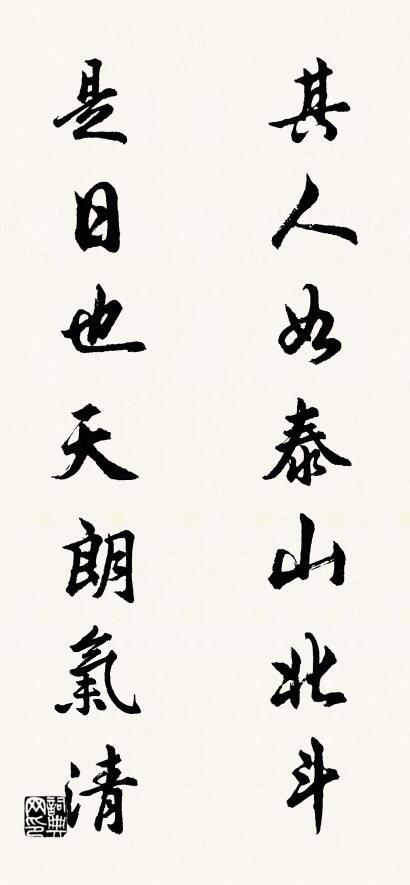 其人如泰山北斗
是日也天朗氣清